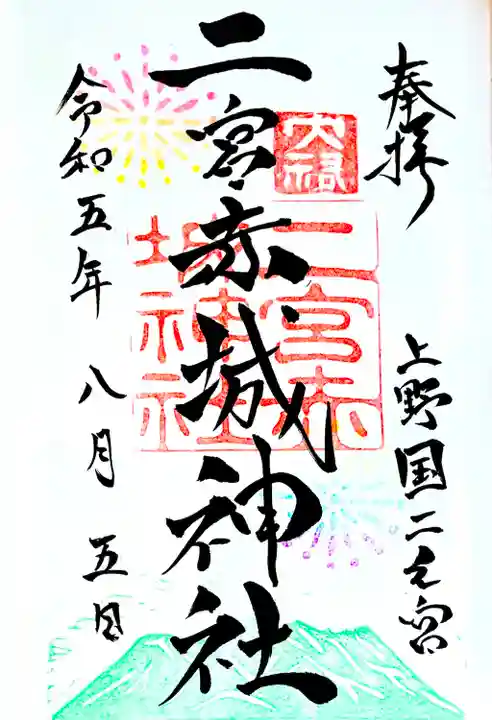 奉拝
上野国二之宮
二宮赤城神社
二宮赤
城神社
令和五年八月五日